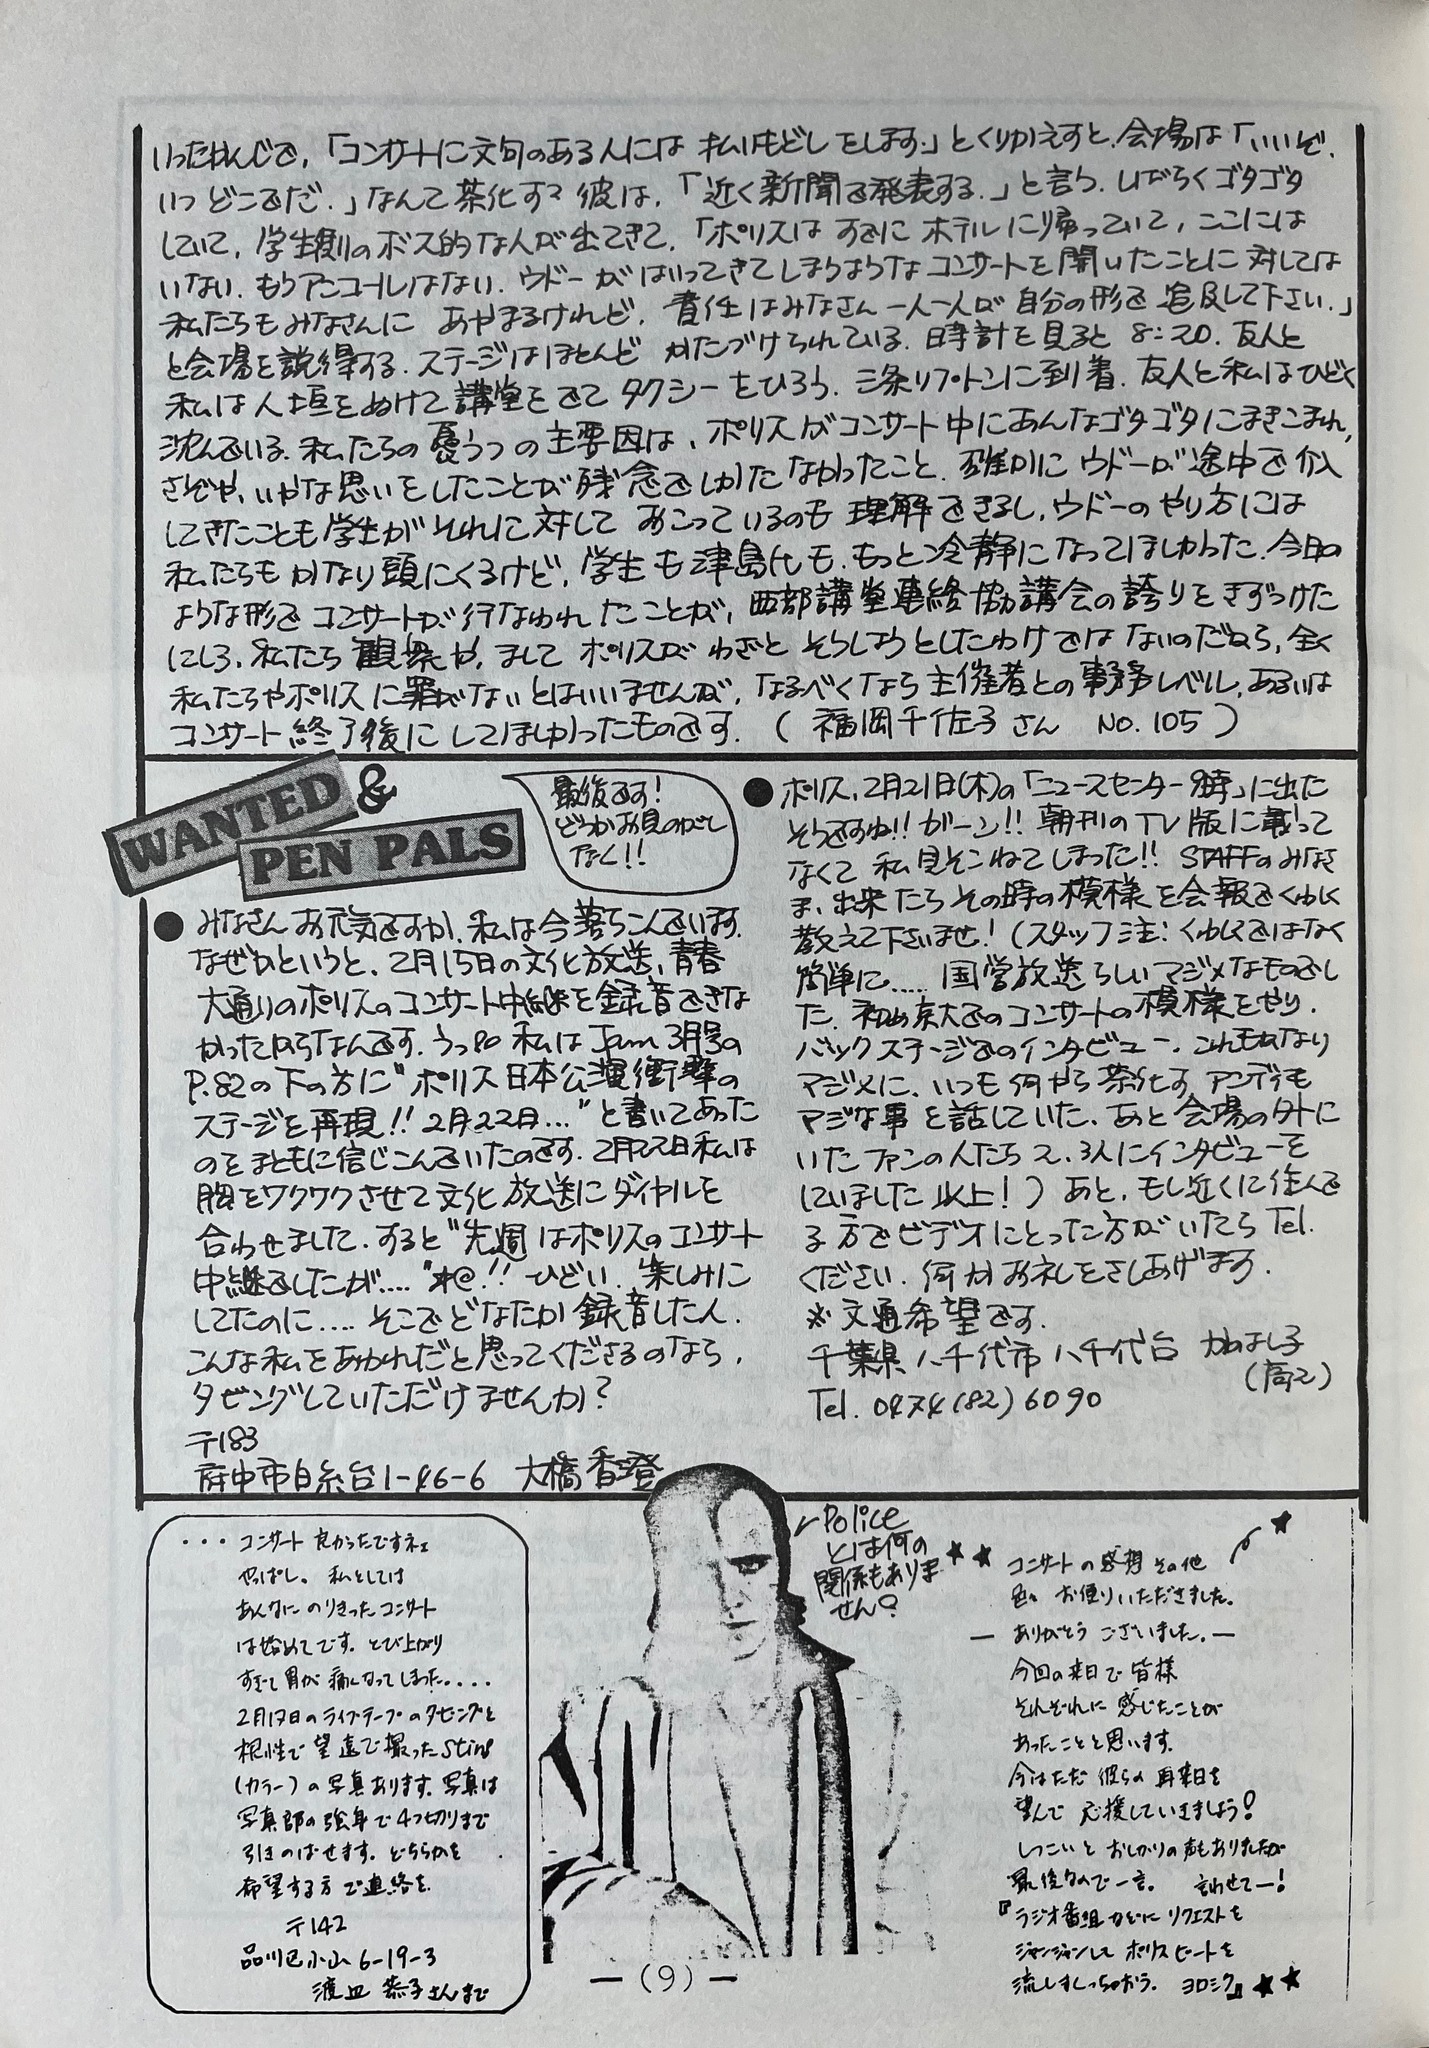 いったかんじで,「コンサートに文句のある人には 払いもどしをします.」とくりかえすと.会場は「いいぞ.
いつ どこでだ.」なんて茶化す? 彼は,「近く新聞で発表する.」と言う. しばらくゴタゴタ
していて, 学生側のボス的な人が出てきて,「ポリスは すでに ホテルに帰っていて, ここには
いない. もうアンコールはない. ウドー がはいってきてしまうようなコンサートを開いたことに対しては
私たちもみなさんに あやまるけれど, 責任はみなさん一人一人が 自分の形で 追及して下さい.」
と会場を説得する. ステージはほとんど かたづけられている. 時計を見ると 8:20. 友人と
私は人垣をぬけて講堂をでて タクシーをひろう. 三条リプトンに到着. 友人と私はひどく
沈んでいる. 私たちの憂うつの主要因は, ポリスがコンサート中にあんなゴタゴタにまきこまれ,
さぞや, いやな思いをしたことが残念でしかたなかったこと. 確かに ウドーが途中で介入
してきたことも学生がそれに対して おこっているのも理解できるし, ウドーのやり方には
私たちもかなり頭にくるけど, 学生も津島氏も, もっと冷静になってほしかった. 今日の
ような形で コンサートが行なわれたことが, 西部講堂連絡協議会の誇りをきずつけた
にしろ, 私たち観衆や, まして ポリスが わざと そうしようとしたわけではないのだから, 全く
私たちやポリスに罪がないとはいいませんが, なるべくなら主催者との事務レベル, あるいは
コンサート終了後にしてほしかったものです. (福岡千佐子さん No.105)
WANTED &
PEN PALS
最後です!
どうかお見のがし
なく!!
● みなさんお元気ですか. 私は今落ちこんでいます.
なぜかというと, 2月15日の文化放送, 青春
大通りのポリスのコンサート中継を録音できな
かったからなんです. うっ 私はJam 3月号の
P.82の下の方に"ポリス日本公演衝撃の
ステージを再現!! 2月22日..."と書いてあった
のをまともに信じこんでいたのです. 2月22日私は
胸をワクワクさせて文化放送にダイヤルを
合わせました. すると"先週はポリスのコンサート
中継でしたが...."*@!! ひどい. 楽しみに
してたのに.... そこでどなたか録音した人.
こんな私をあわれだと思ってくださるのなら,
ダビングしていただけませんか?
〒183
府中市白糸台1-46-6 大橋香澄
● ポリス, 2月21日(木)の「ニュースセンター9時」に出た
そうですね!! ガーン!! 朝刊のTV版に載って
なくて 私見そこねてしまった!! STAFFのみなさ
ま, 出来たら その時の模様を会報でくわしく
教えて下さいませ! (スタッフ注: くわしくではなく
簡単に..... 国営放送らしいマジメなものでし
た. 初め京大でのコンサートの模様をやり,
バックステージでのインタビュー. これもかなり
マジメに, いつも何やら茶化すアンディも
マジな事を話していた. あと会場の外に
いたファンの人たち2,3人にインタビューを
していました 以上!) あと, もし近くに住んで
る方でビデオにとった方がいたらTel.
ください. 何かお礼をさしあげます.
※文通希望です.
千葉県八千代市八千代台 かねよし子
(高2)
Tel. 0474(82)6090
・・・ コンサート 良かったですネェ
やっぱし。私としては
あんなに のりきったコンサート
は始めてです. とび上がり
すぎて 肩が 痛くなってしまった....
2月17日のライブテープのダビングと
根性で 望遠で撮ったSting
(カラー)の写真あります. 写真は
写真部の強身で4つ切りまで
引きのばせます. どちらかを
希望する方 ご連絡を.
〒142
品川区小山6-19-3
渡辺 恭子さんまで
Police
とは何の
関係もありま
せん?
コンサートの感想その他
色々 お便りいただきました.
— ありがとう ございました. —
今回の来日で 皆様
それぞれに 感じたことが
あったことと思います.
今はただ 彼らの 再来日を
望んで 応援していきましょう!
しつこいと おしかりの声もありましたが
最後なので一言。 言わせてー!
『ラジオ番組などに リクエストを
ジャンジャンして ポリスビートを
流しましょっちゃおう. ヨロシク』★★
—(9)—